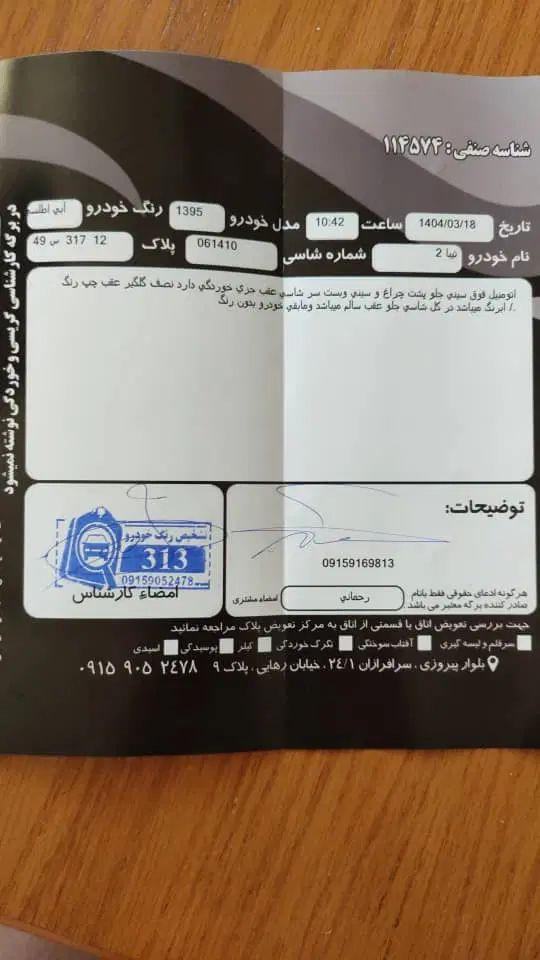 شناسه صنفی: ۱۱۴۵۷۴
تاریخ 1404/03/18 ساعت 10:42 مدل خودرو 1395 رنگ خودرو آبي اطلسي
نام خودرو تيبا 2 شماره شاسی 061410 پلاک 12 317 س 49
اتومبیل فوق سيني جلو پشت چراغ و سيني وست سر شاسي عقب جزي خوردگي دارد نصف گلگیر عقب چپ رنگ
./ ابرنگ میباشد در کل شاسي جلو عقب سالم میباشد ومابقي خودرو بدون رنگ
توضیحات:
09159169813
هرگونه ادعای حقوقی فقط بانام
صادر کننده برگه معتبر می باشد
رحماني
امضاء مشتری
تشخیص رنگ خودرو
313
09159052478
امضاء کارشناس
جهت بررسی تعویض اتاق یا قسمتی از اتاق به مرکز تعویض پلاک مراجعه نمائید
سرقلم و لیسه گیری آفتاب سوختگی تگرگ خوردگی کیلر پوسیدگی اسیدی
بلوار پیروزی، سرافرازان ۲۴/۱، خیابان رهایی، پلاک ۹ ۰۹۱۵ ۹۰۵ ۲۴۷۸
در برگه کارشناسی گریسی و خوردگی نوشته نمیشود